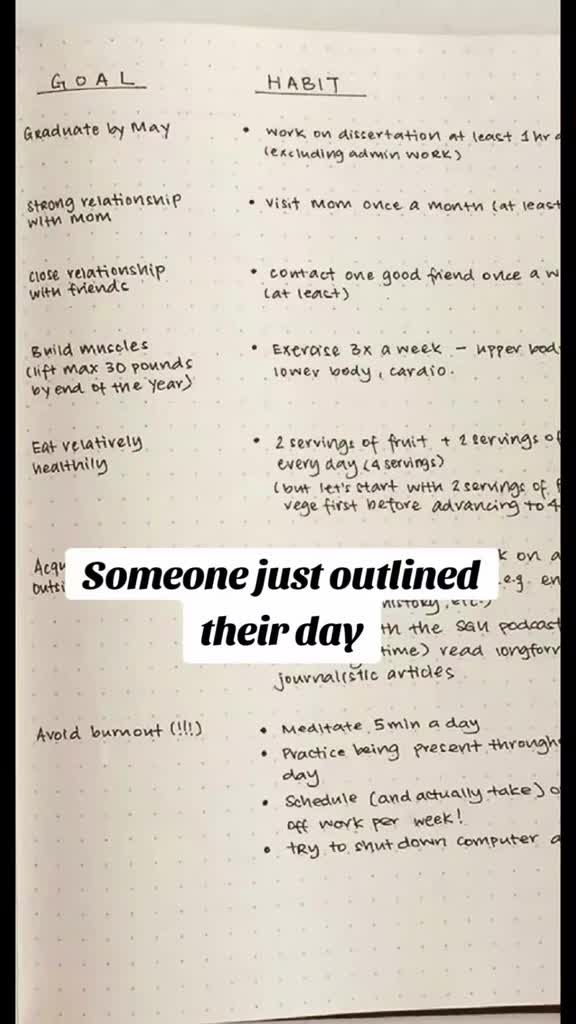 GOAL HABIT
Graduate by May
• work on dissertation at least 1 hr
(excluding admin work)
strong relationship
with mom
• visit mom once a month (at least
close relationship
with friends
• contact one good friend once a w
(at least)
Build muscles
(lift max 30 pounds
by end of the year)
• Exercise 3x a week – upper bod
lower body, cardio.
Eat relatively
healthily
• 2 servings of fruit + 2 servings of
every day (4 servings)
(but let's start with 2 servings of f
vege first before advancing to 4
Acqu
outsi
k on a
.e.g. en
history, etc.)
th the SGU podcast
time) read longform
journalistic articles
Someone just outlined
their day
Avoid burnout (!!!)
• Meditate 5min a day
• Practice being present through
day
• Schedule (and actually take) o
off work per week!
• try to shut down computer a